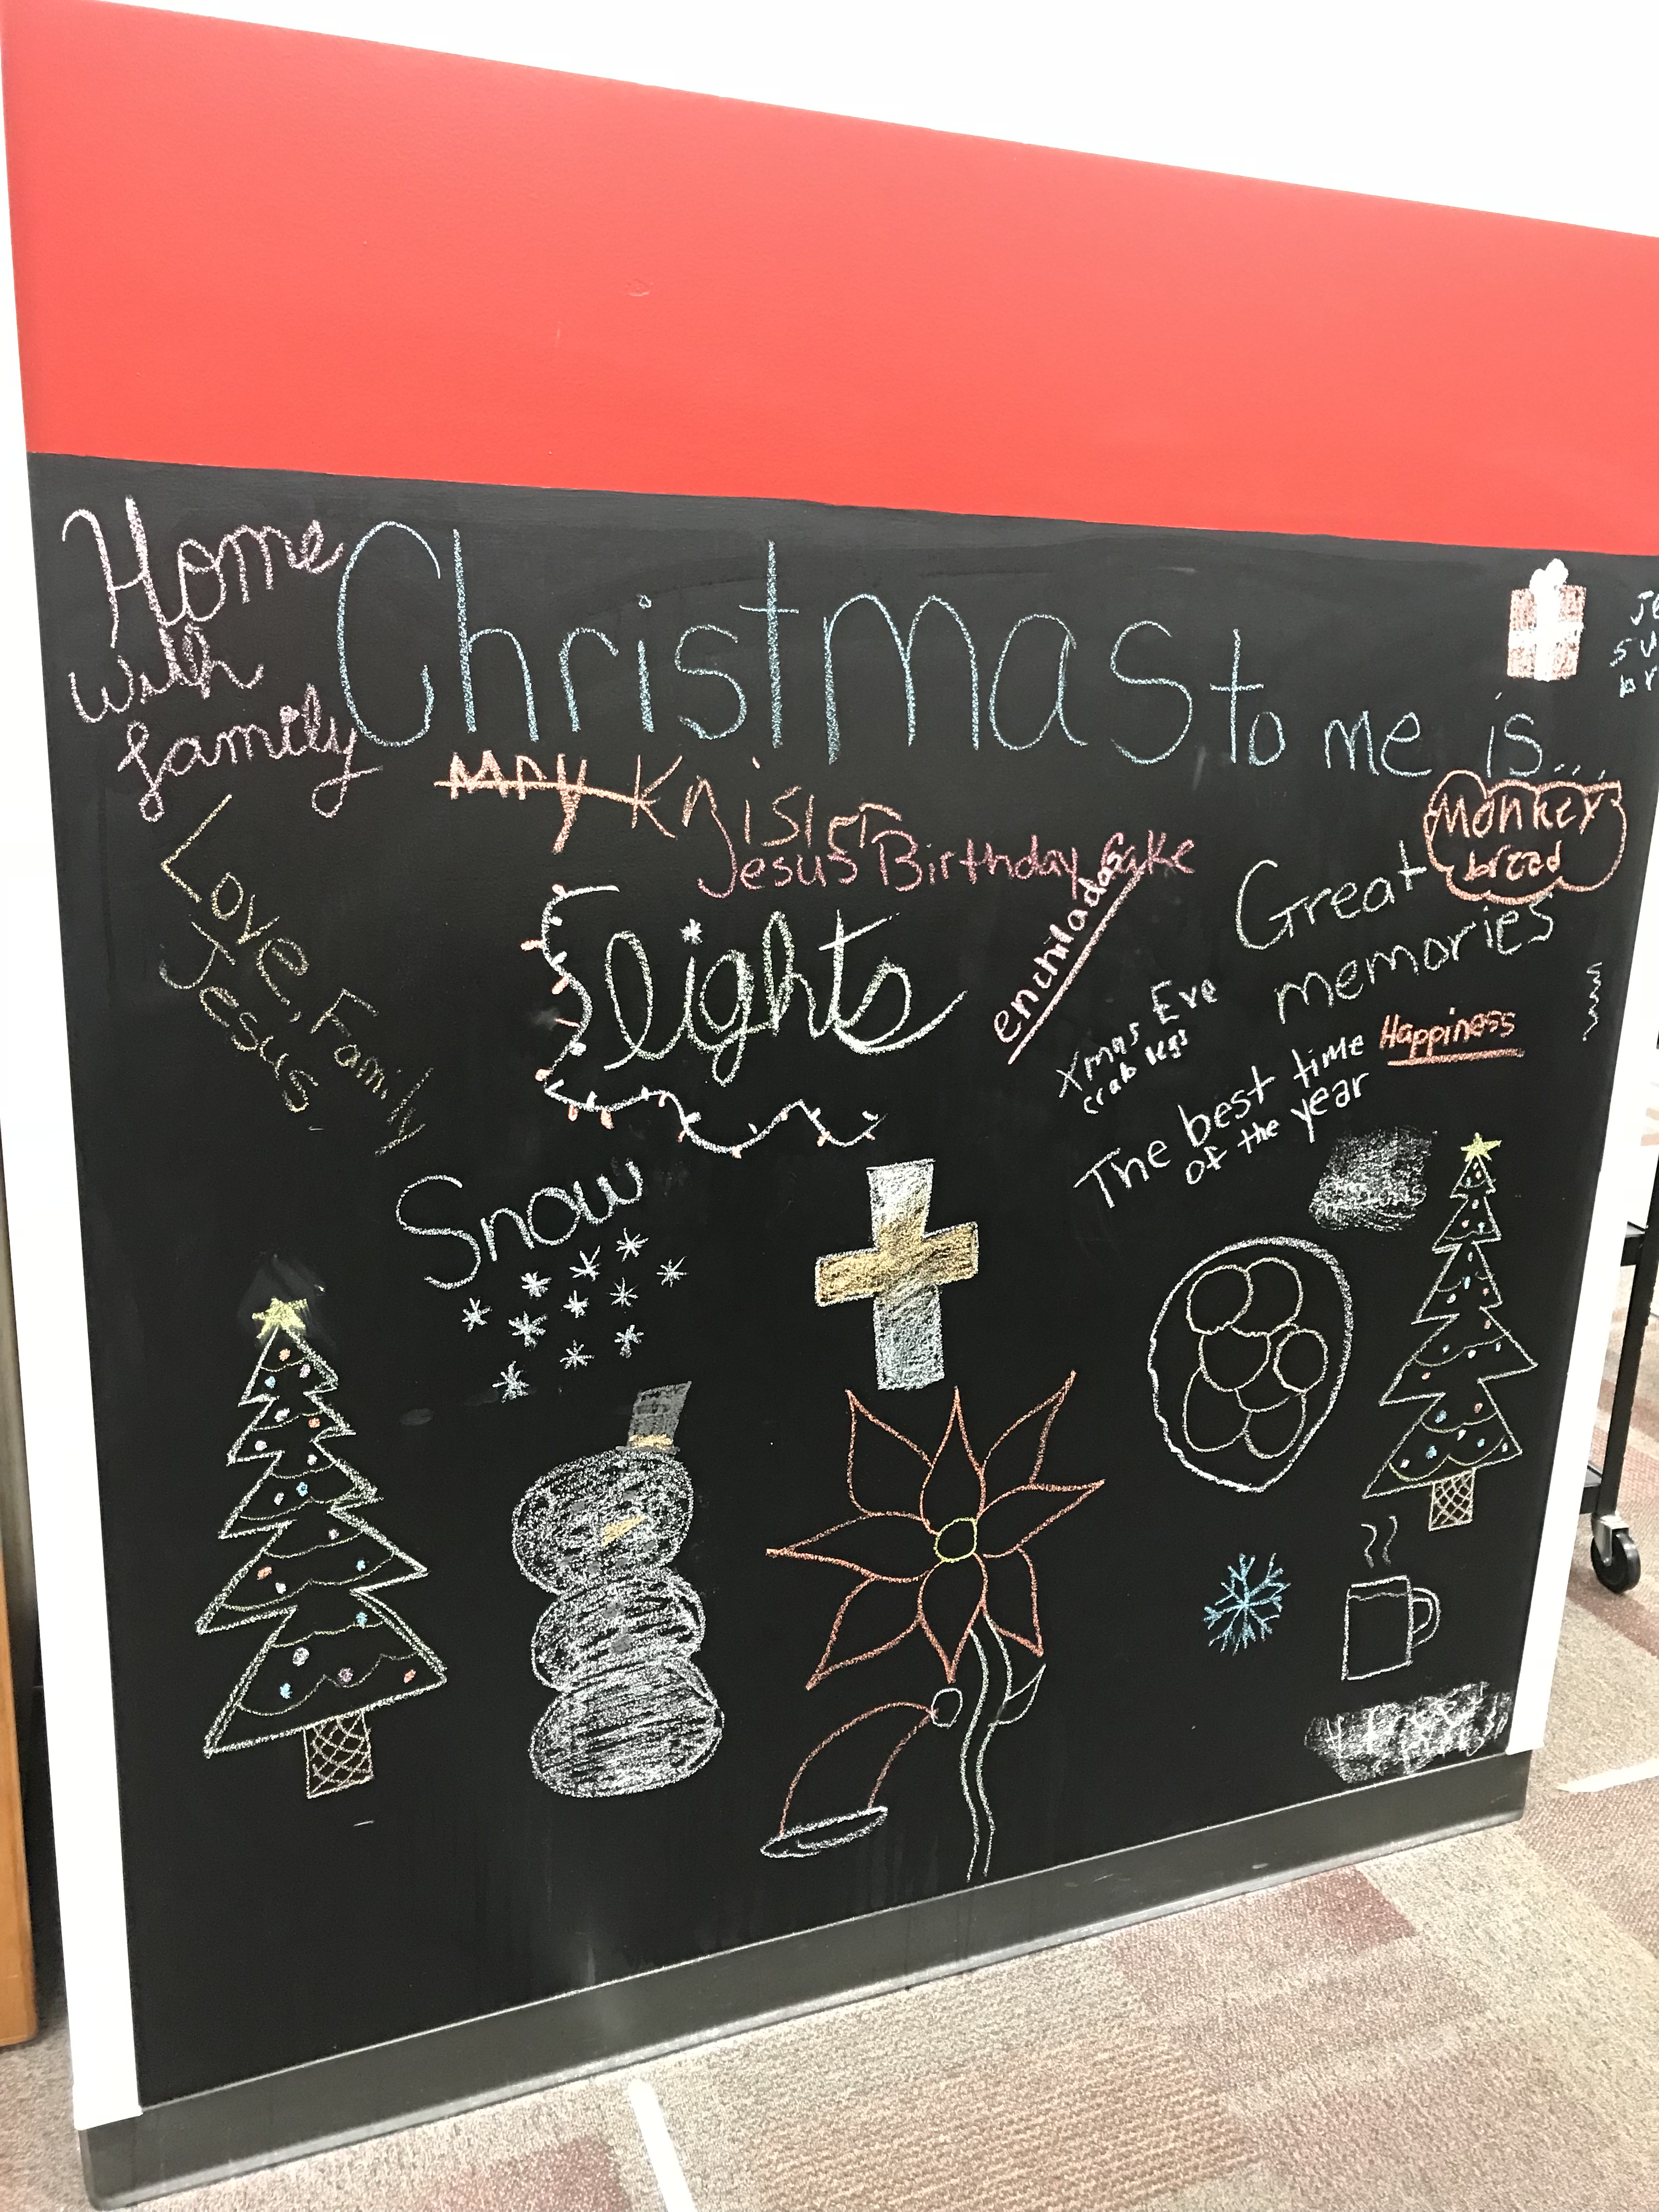 Home
with
family
Christmas to me is...
Knisler
Jesus Birthday Cake
Monkey
bread
Love, Family
Jesus
lights
enchiladas
Great
memories
Xmas Eve
crab legs
Happiness
The best time
of the year
Snow